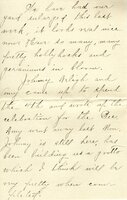 We have had our
yard enlarged this last
week, it looks real nice
now. Have so many, many
pretty hollyhocks and
geraniums in bloom.
Johnny Wright and
my came up to spend
the 4th and work up the
celebration for the Dee
Amy and way last Mon,
Johnny is still here, has
been building us a gate
which I think will be
very pretty when com-
pleted.